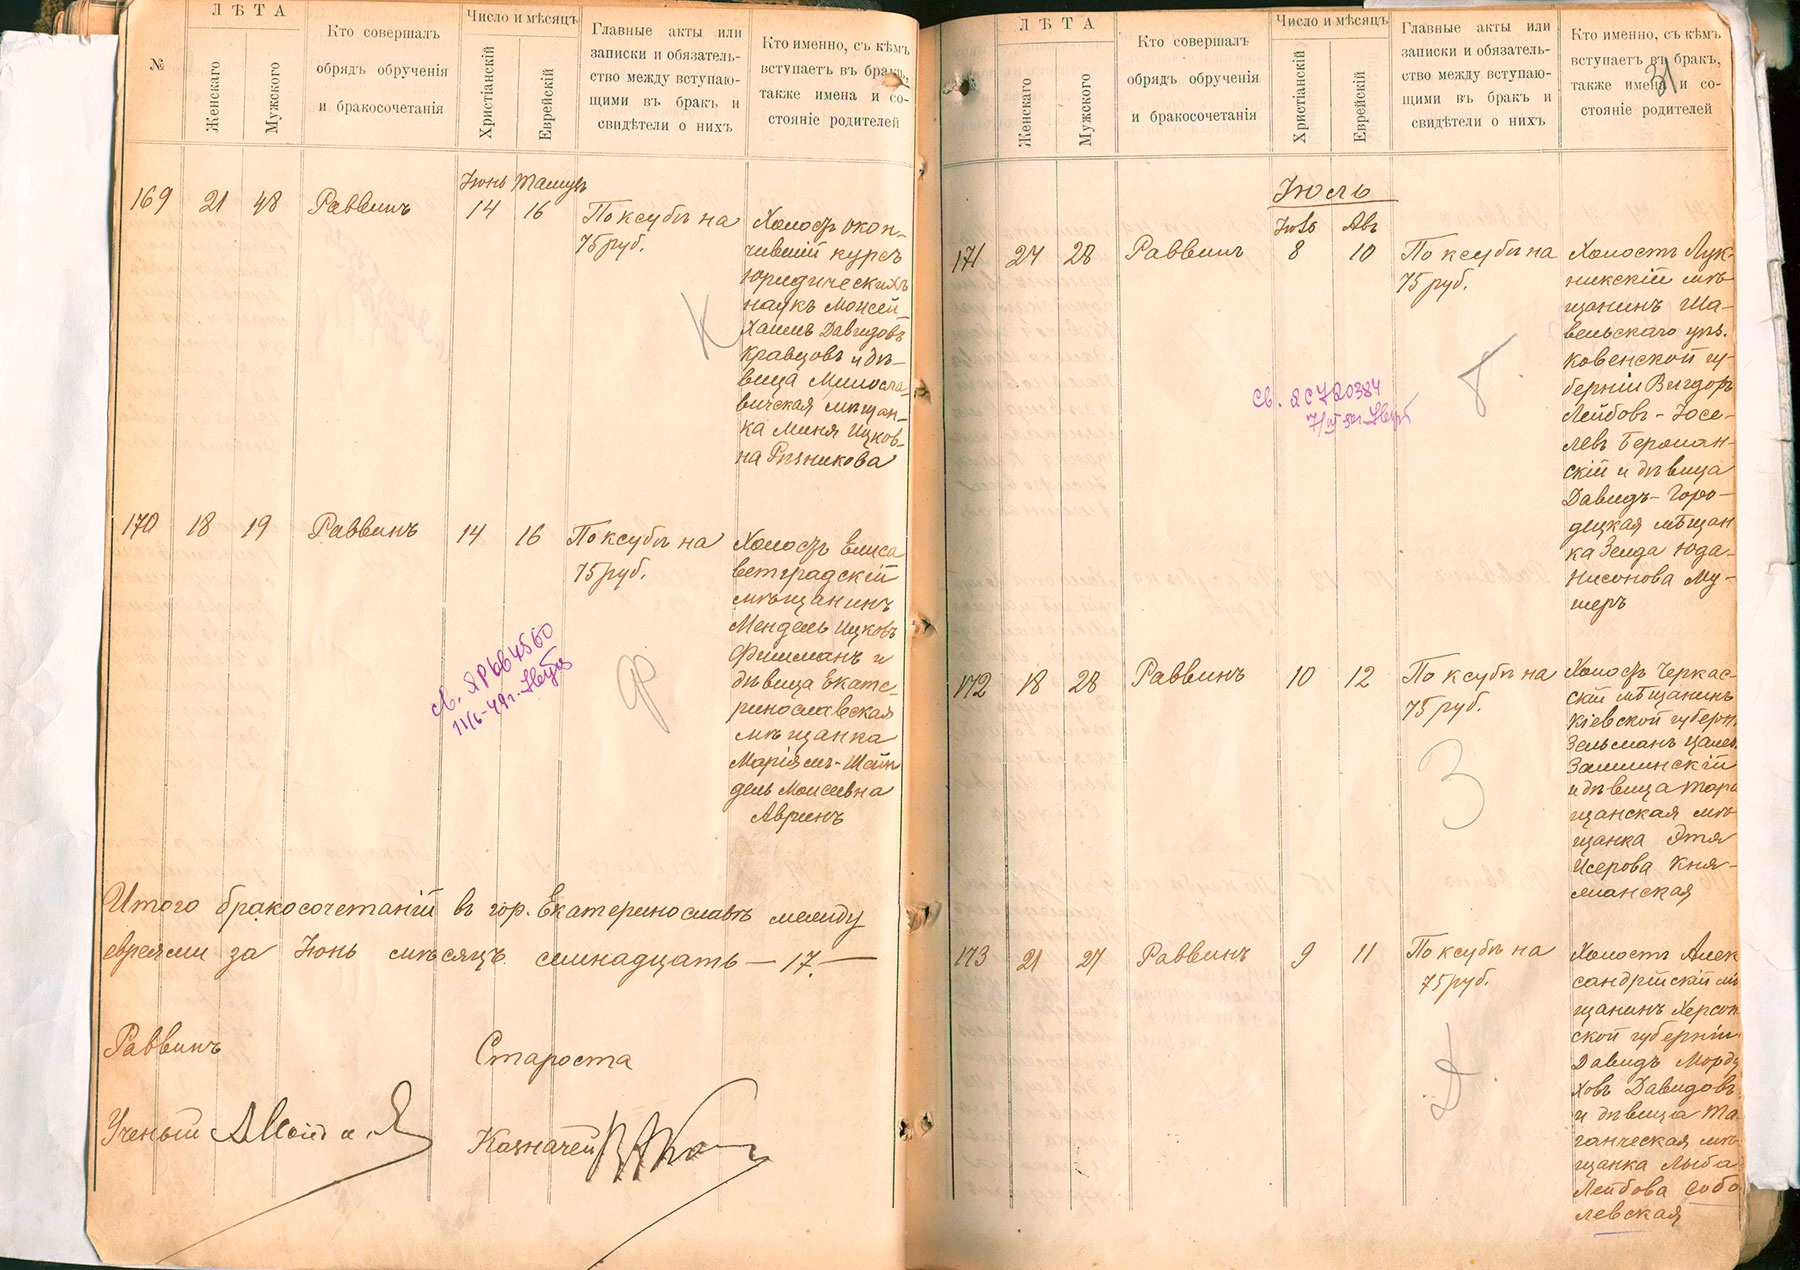 №
ЛѢТА
Женскаго
Мужского
Кто совершалъ
обрядъ обрученія
и бракосочетанія
Число и мѣсяцъ
Христіанскій
Еврейскій
Главные акты или
записки и обязатель-
ство между вступаю-
щими въ бракъ и
свидѣтели о нихъ
Кто именно, съ кѣмъ
вступаетъ въ бракъ,
также имена и со-
стояніе родителей
Іюнь Тамузъ
169 21 48 Раввинъ 14 16 По ксубѣ на
75 руб.
Холостъ окон-
чившій курсъ
юридическихъ
наукъ Моисей-
Хаимъ Давидовъ
Кравцовъ и дѣ-
вица Милосла-
вичская мѣщан-
ка Миня Ицков-
на Рѣзникова
К
170 18 19 Раввинъ 14 16 По ксубѣ на
75 руб.
Холостъ Елиса
ветградскій
мѣщанинъ
Мендель Ицковъ
Фишманъ и
дѣвица Екате-
ринославская
мѣщанка
Маріямъ-Шейн
дель Моисеевна
Авринъ
св. ЯР664560
11/6-49г.
Ф
Итого бракосочетаній въ гор. Екатеринославѣ между
евреями за Іюнь мѣсяцъ семнадцать — 17. —
Раввинъ Староста
Ученый
Казначей
ЛѢТА
Женскаго
Мужского
Кто совершалъ
обрядъ обрученія
и бракосочетанія
Число и мѣсяцъ
Христіанскій
Еврейскій
Главные акты или
записки и обязатель-
ство между вступаю-
щими въ бракъ и
свидѣтели о нихъ
Кто именно, съ кѣмъ
вступаетъ въ бракъ,
также имена и со-
стояніе родителей
31
Іюль
Іюль Авъ
171 24 28 Раввинъ 8 10 По ксубѣ на
75 руб.
Холостъ Лук-
никскій мѣ-
щанинъ Ша-
вельскаго уѣз.
Ковенской гу-
берніи Вигдоръ
Лейбовъ-Іосе-
левъ Берман-
скій и дѣвица
Давидъ-Горо-
децкая мѣщан
ка Зелда Юда-
Нисонова Му-
меръ
св. 2С720384
172 18 28 Раввинъ 10 12 По ксубѣ на
75 руб.
Холостъ Черкас-
скій мѣщанинъ
Кіевской губерн
Зельманъ Цалев.
Замминскій
и дѣвица Тара
щанская мѣ-
щанка Этя
Исерова Кня-
жанская
З
173 21 27 Раввинъ 9 11 По ксубѣ на
75 руб.
Холостъ Алек
сандрійскій мѣ
щанинъ Херсон
ской губерніи
Давидъ Морду
ховъ Давидовъ
и дѣвица Та-
ганческая мѣ-
щанка Лыба
Лейбова Собо
левская
Д